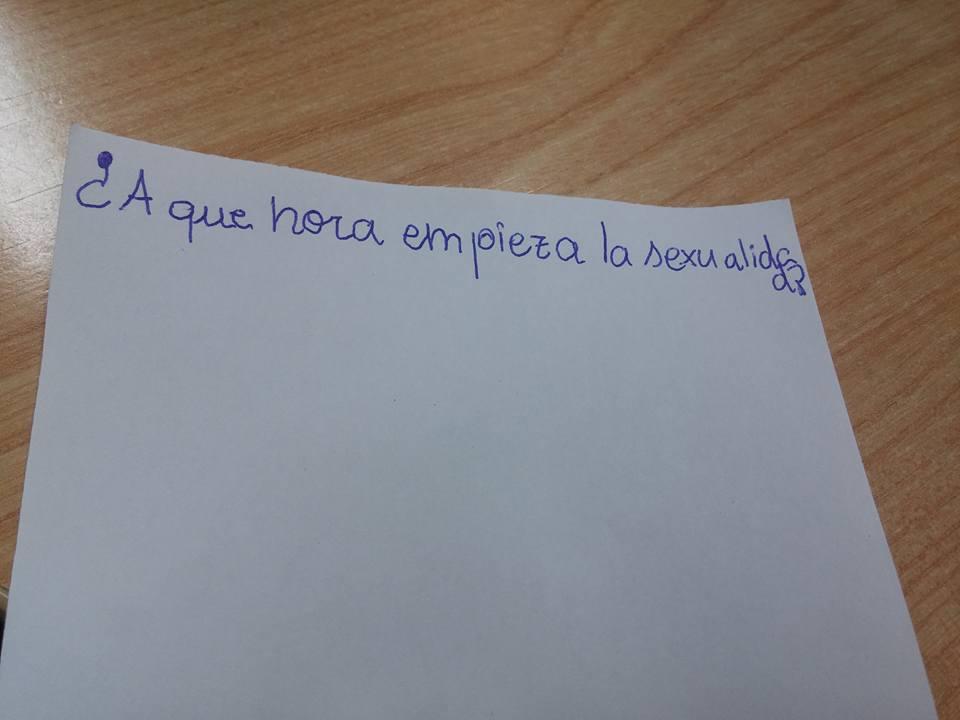 ¿A que hora empieza la sexualidad?